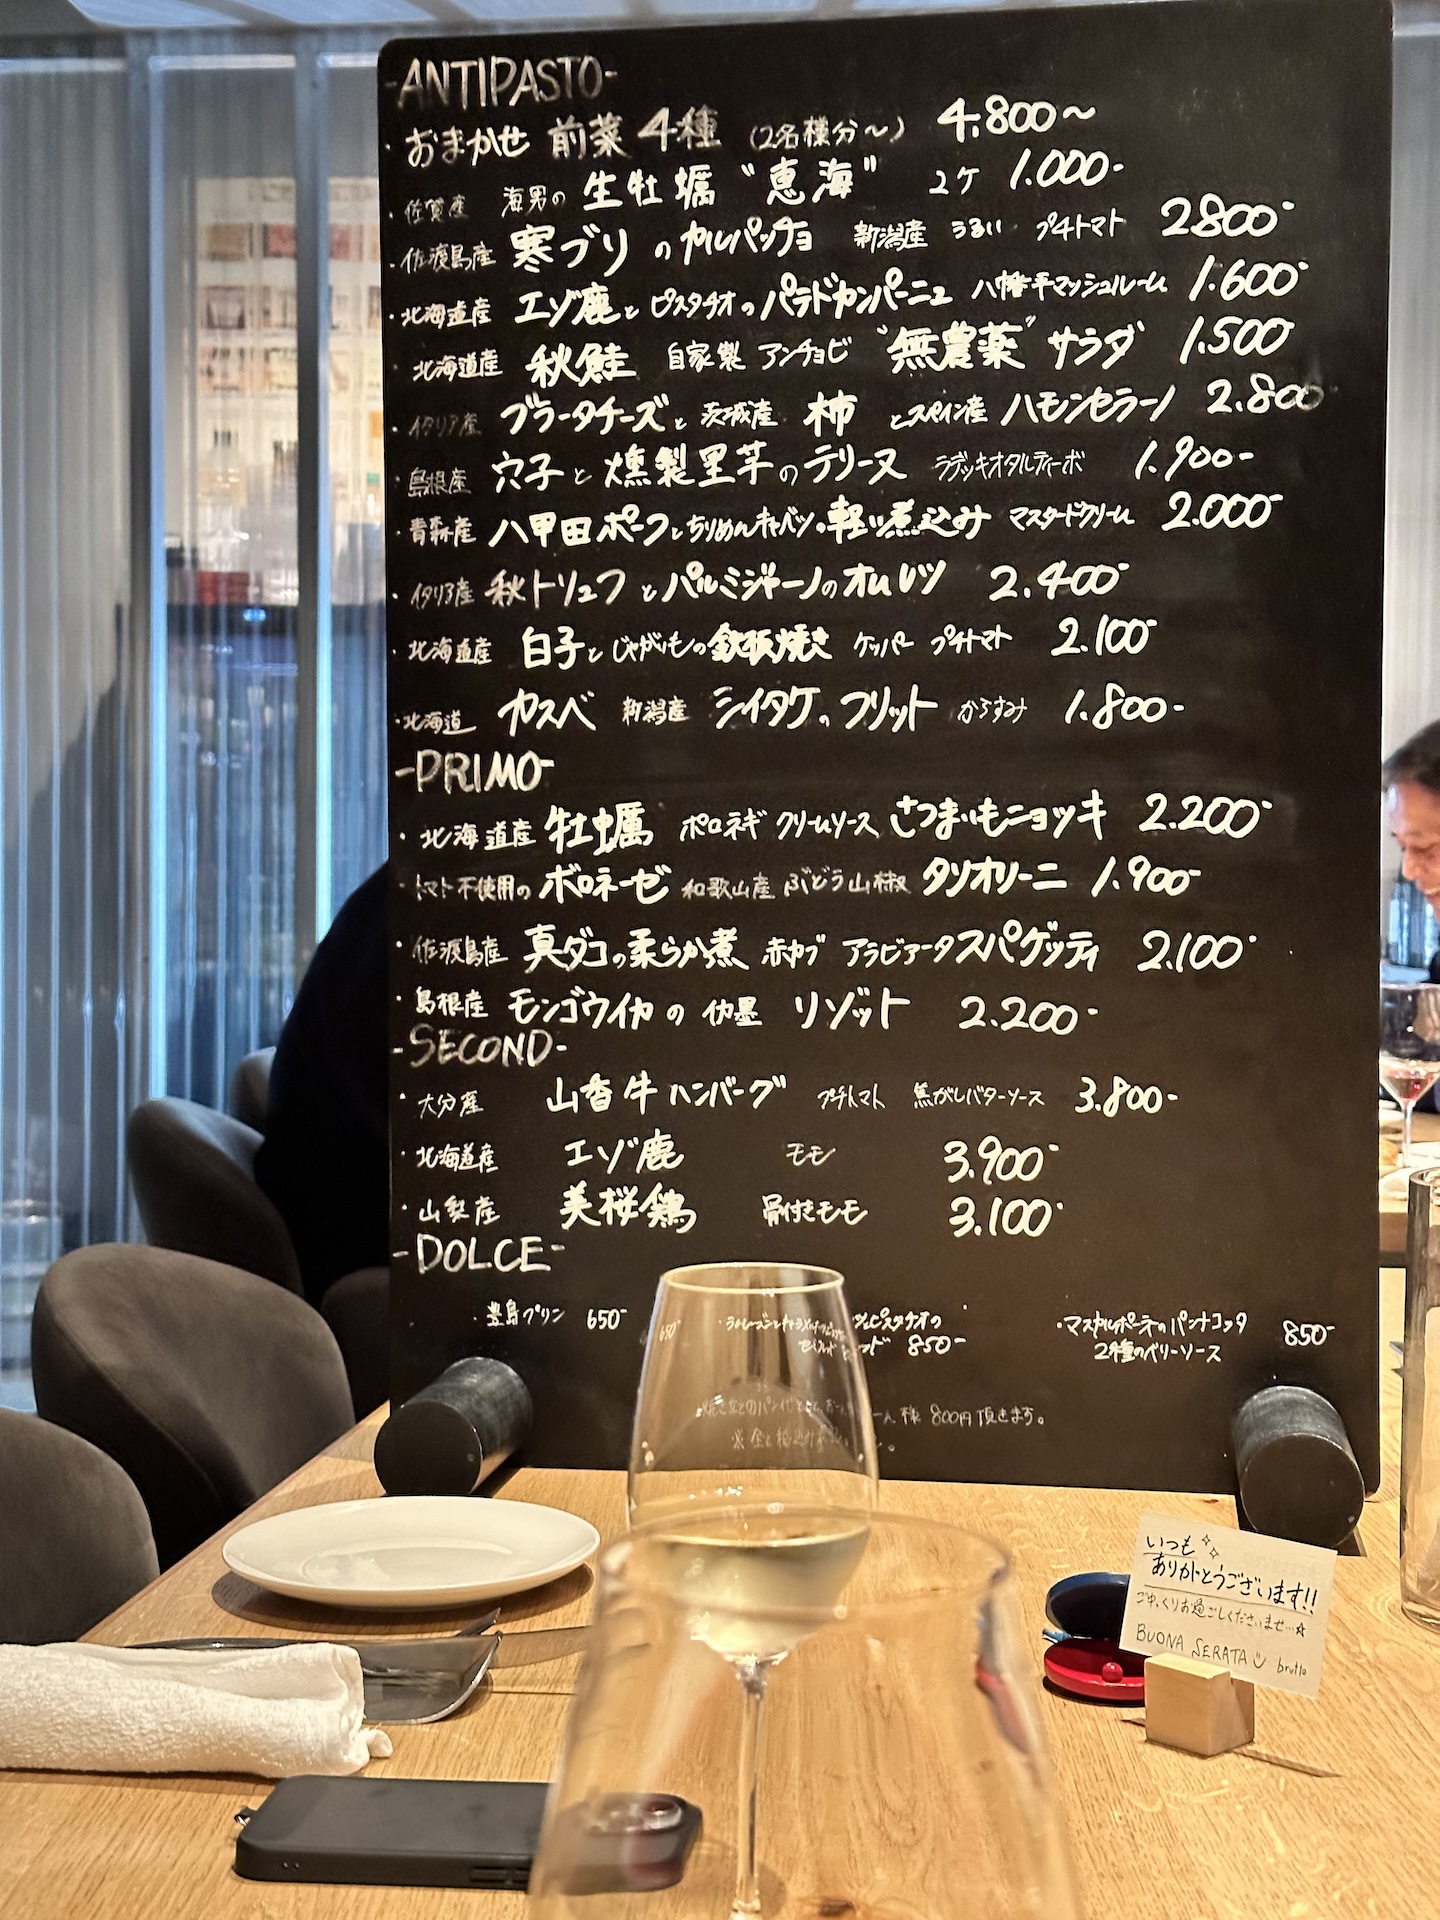 -ANTIPASTO-
・おまかせ 前菜 4種 (2名様分〜) 4.800〜
・佐賀産 海男の 生牡蠣 "恵海" 2ケ 1.000-
・佐渡島産 寒ブリ の カルパッチョ 新潟産 うるい プチトマト 2800-
・北海道産 エゾ鹿と ピスタチオの パテドカンパーニュ 八幡平マッシュルーム 1.600-
・北海道産 秋鮭 自家製 アンチョビ "無農薬" サラダ 1.500-
・イタリア産 ブラータチーズと 茨城産 柿 とスペイン産 ハモンセラーノ 2.800
・島根産 穴子と 燻製里芋のテリーヌ ラデッキオタルティーボ 1.900-
・青森産 八甲田ポークとちりめんキャベツの軽い煮込み マスタードクリーム 2.000-
・イタリア産 秋トリュフ とパルミジャーノのオムレツ 2.400-
・北海道産 白子とじゃがいもの鉄板焼き ケッパー プチトマト 2.100-
・北海道 カスベ 新潟産 シイタケのフリット からすみ 1.800-
-PRIMO-
・北海道産 牡蠣 ポロネギ クリームソース さつまいもニョッキ 2.200-
・トマト不使用の ボロネーゼ 和歌山産 ぶどう山椒 タリオリーニ 1.900-
・佐渡島産 真ダコの柔らか煮 赤カブ アラビアータスパゲッティ 2.100-
・島根産 モンゴウイカ の イカ墨 リゾット 2.200-
-SECOND-
・大分産 山香牛ハンバーグ プチトマト 焦がしバターソース 3.800-
・北海道産 エゾ鹿 モモ 3.900-
・山梨産 美桜鶏 骨付きモモ 3.100-
-DOLCE-
・豊島プリン 650-
ピスタチオの
850-
・マスカルポーネのパンナコッタ 850-
2種のベリーソース
様 800円頂きます。
いつも
ありがとうございます!!
ごゆっくりお過ごしくださいませ…☆
BUONA SERATA brutto